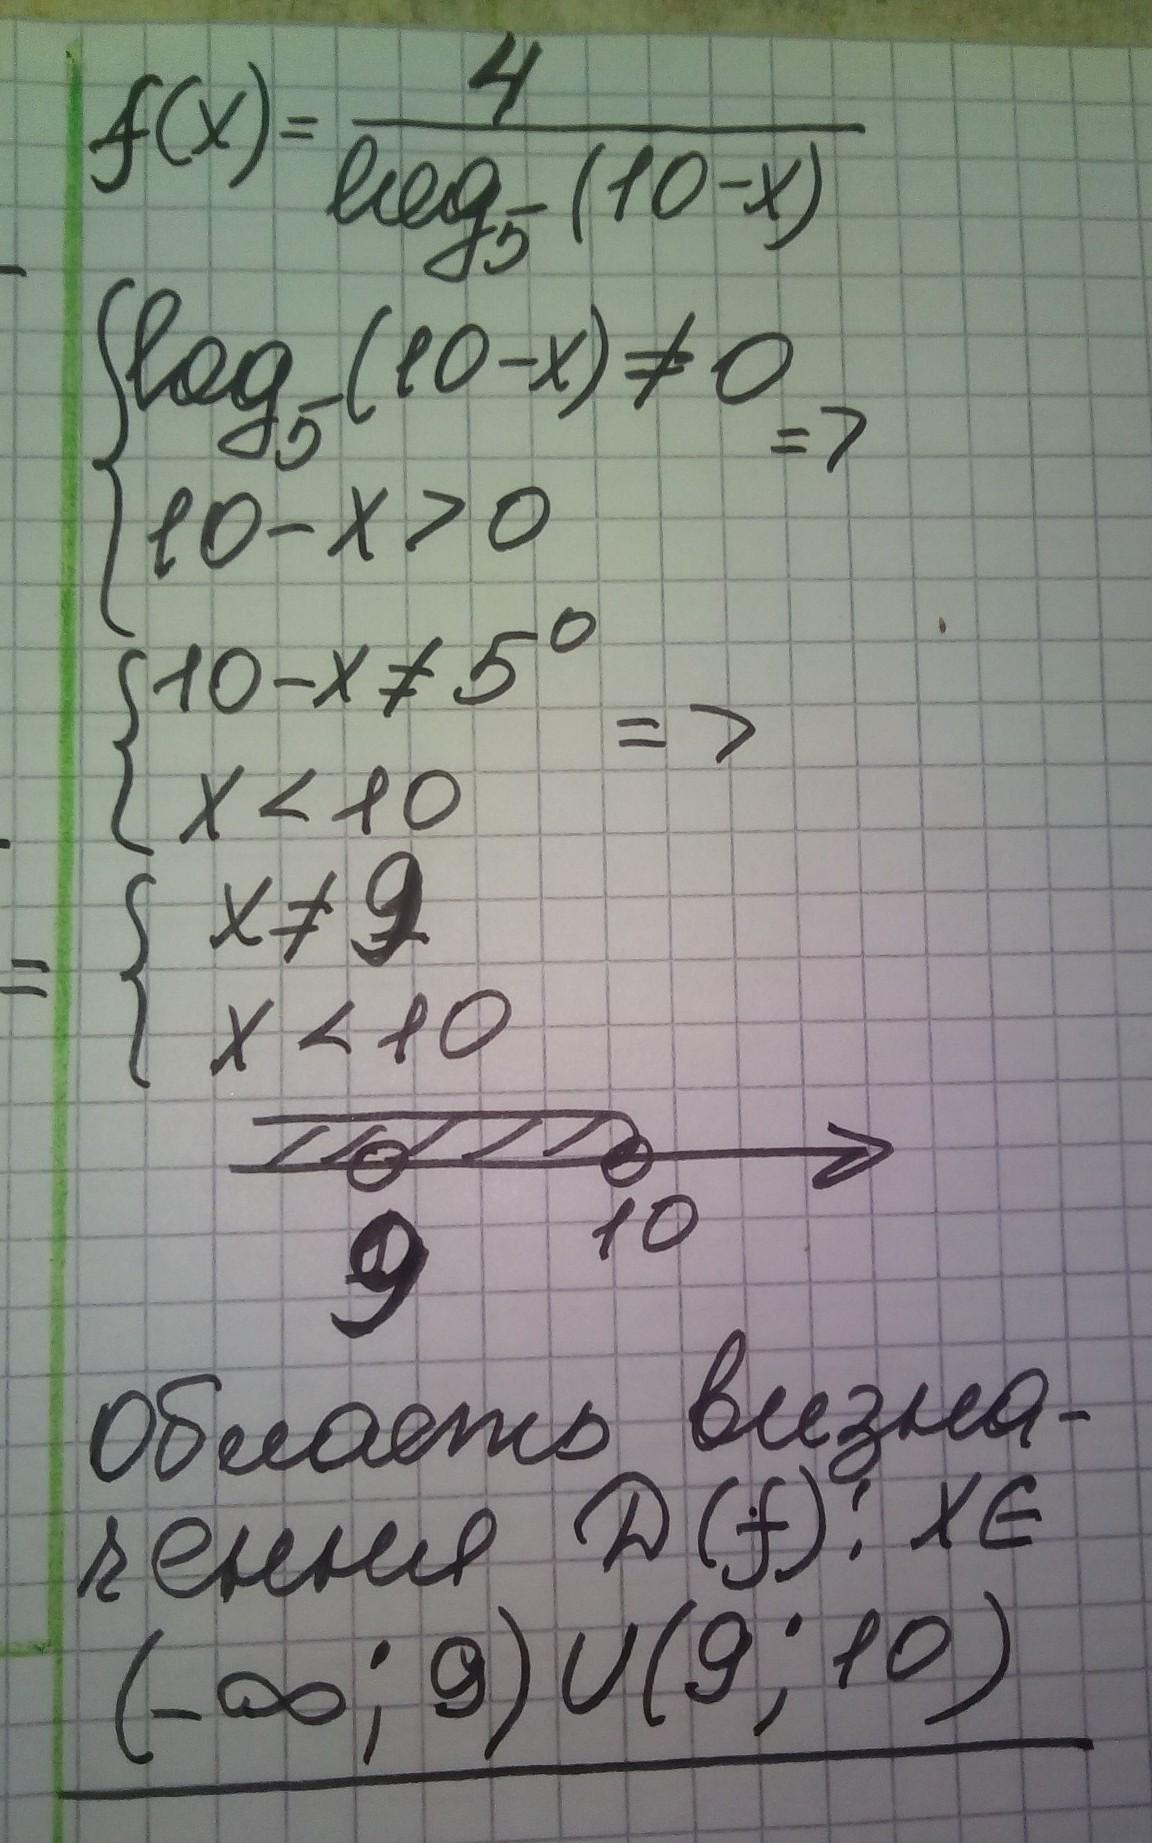 f(x) = 4 / log₅(10-x)
{ log₅(10-x) ≠ 0
=>
10-x > 0
{ 10-x ≠ 5⁰
=>
x < 10
=
{ x ≠ 9
x < 10
9 10
область визна-
чення D(f): x∈
(-∞; 9)∪(9; 10)